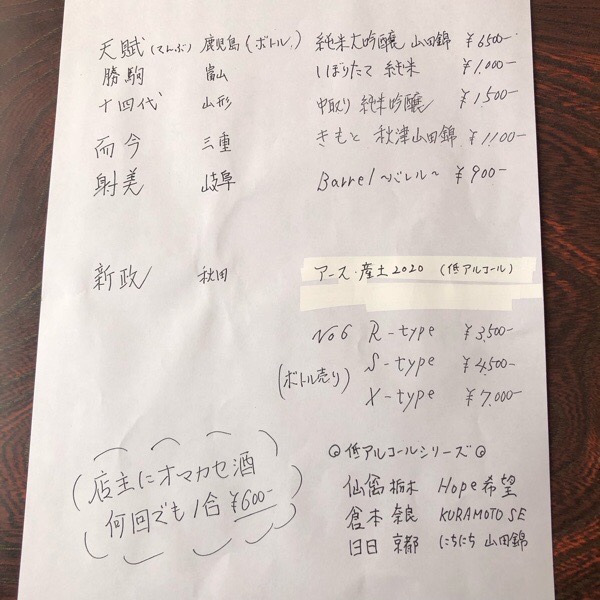 天賦(てんぶ) 鹿児島(ボトル) 純米大吟醸 山田錦 ¥6500-
勝駒 富山 しぼりたて 純米 ¥1,000-
十四代 山形 中取り 純米吟醸 ¥1,500-
而今 三重 きもと 秋津山田錦 ¥1,100-
射美 岐阜 Barrel～バレル～ ¥900-
新政 秋田 アース・産土2020 (低アルコール)
No6 R-type ¥3,500-
(ボトル売り) S-type ¥4,500-
X-type ¥7,000-
店主にオマカセ酒
何回でも1合 ¥600-
◎低アルコールシリーズ◎
仙禽 栃木 Hope 希望
倉本 奈良 KURAMOTO SE
日日 京都 にちにち 山田錦